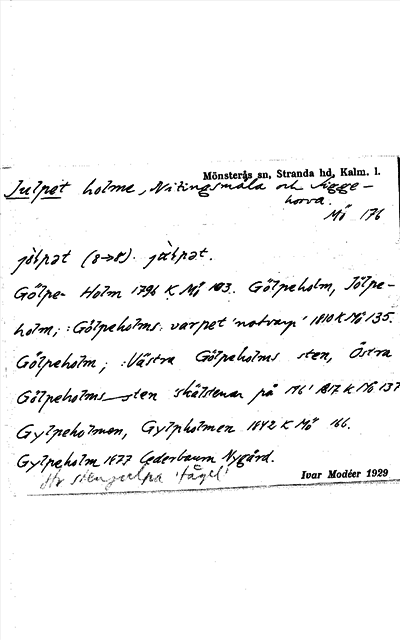 Mönsterås sn, Stranda hd, Kalm. l.
Julpet holme, Nötingsmåla och Sigge-
horva.
Mö 176
Gölpe- Holm 1796 K Mö 103. Gölpeholm, Jölpe-
holm; :Gölpeholms: varpet 'notvarp' 1810 K Mö 135.
Gölpeholm; :Västra Gölpeholms sten, Östra
Gölpeholms sten 'skälstenar på 1817 K Mö 137
Gylpeholmen, Gylpholmen 1842 K Mö 166.
Gylpeholm 1877 Cederbaum Nygård.
stenjulpa 'fågel'
Ivar Modéer 1929